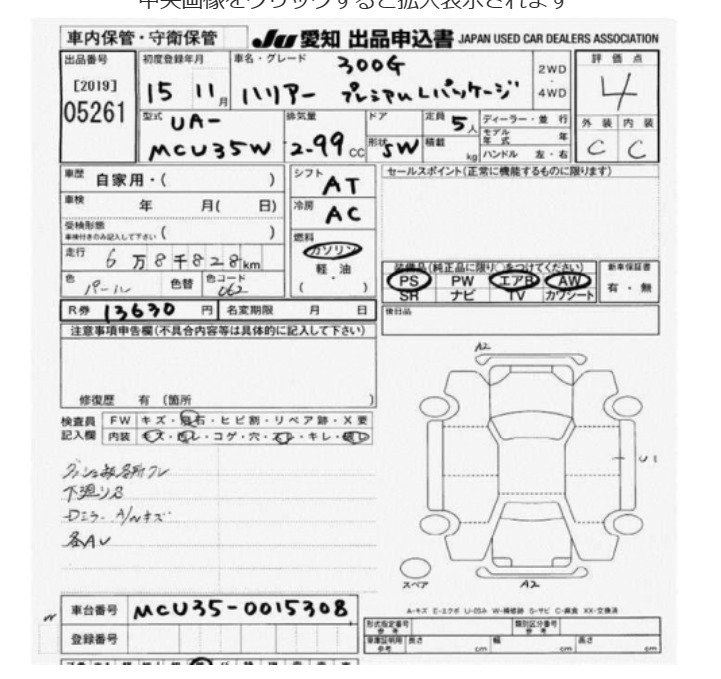 中央画像をクリックすると拡大表示されます
車内保管・守衛保管 JU 愛知 出品申込書 JAPAN USED CAR DEALERS ASSOCIATION
出品番号 初度登録年月 車名・グレード 300G 2WD 評価点
[2019] 15 11月 ハリアー プレミアムLパッケージ 4WD 4
05261
型式 UA- 排気量 ドア 定員 5人 ディーラー・並行 外装 内装
MCU35W 2-99cc 形状 SW 積載 kg モデル年式 年 C C
ハンドル 左・右
車歴 自家用・( ) シフト AT セールスポイント(正常に機能するものに限ります)
車検 年 月( 日) 冷房 AC
受検形態 ( )
車検付きのみ記入して下さい
燃料 ガソリン
走行 6万8千828km 軽・油
装備品(純正品に限り○をつけてください) 新車保証書
色 パール 色替 色コード 062 ( ) PS PW エアB AW 有・無
SR ナビ TV カワシート
R券 13630円 名変期限 月 日 後日品
注意事項申告欄(不具合内容等は具体的に記入して下さい)
修復歴 有 (箇所 )
検査員 FW キズ・飛石・ヒビ割・リペア跡・X要
記入欄 内装 キズ・汚レ・コゲ・穴・スレ・キレ・破レ
A2
下廻りS
各AU
U1
スペア
A2
車台番号 MCU35-0015308
A-キズ E-エクボ U-凹み W-補修跡 S-サビ C-腐食 XX-交換済
登録番号
形式指定番号 参考 類別区分番号 参考
車庫証明用 参考 長さ cm 幅 cm 高さ cm